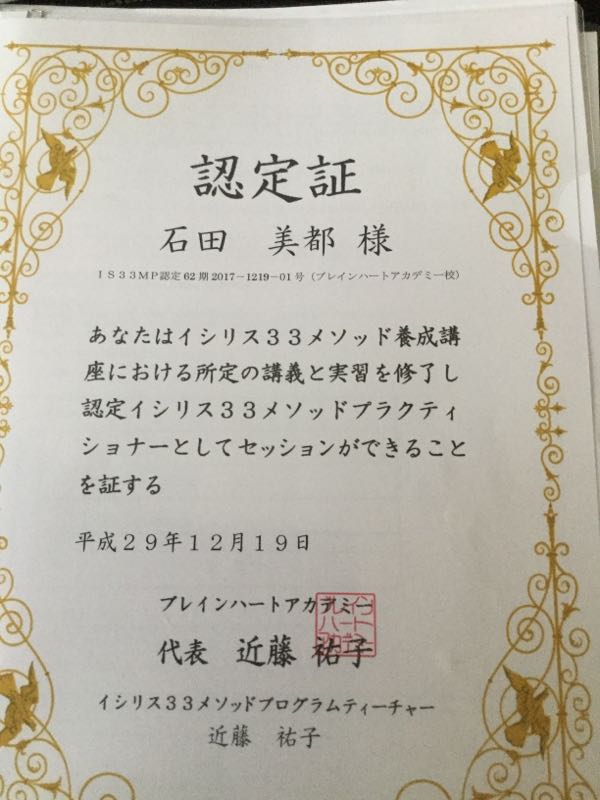 認定証
石田　美都 様
ＩＳ３３ＭＰ認定62期2017－1219－01号（ブレインハートアカデミー校）
あなたはイシリス３３メソッド養成講
座における所定の講義と実習を修了し
認定イシリス３３メソッドプラクティ
ショナーとしてセッションができること
を証する
平成２９年１２月１９日
ブレインハートアカデミー
代表　近藤 祐子
イシリス３３メソッドプログラムティーチャー
近藤　祐子